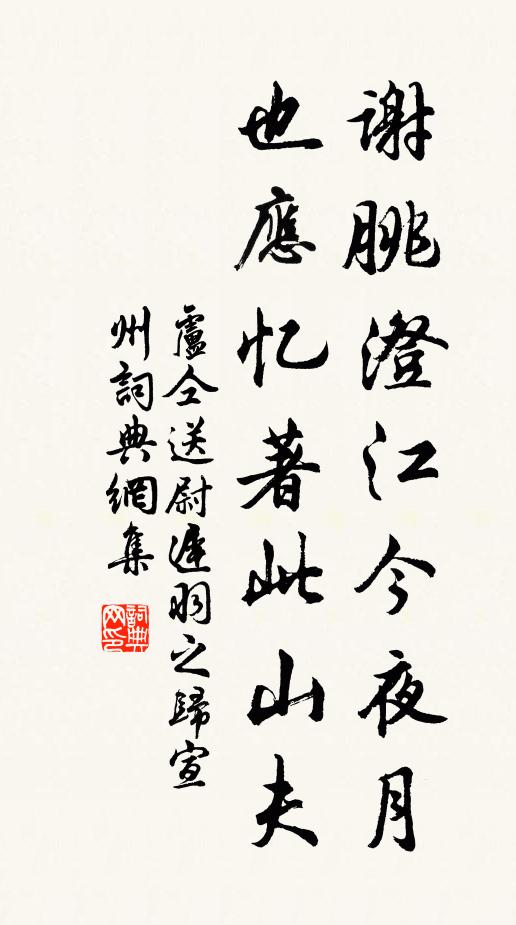 謝朓澄江今夜月
也應忆著此山夫
盧仝送尉遲羽之歸宣
州詞典網集
詞典
网印